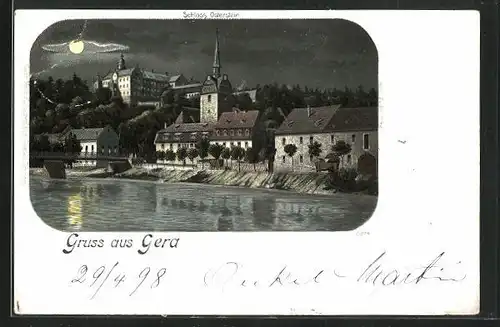 Schloss Osterstein
Gruss aus Gera
29/4 98 Onkel Martin